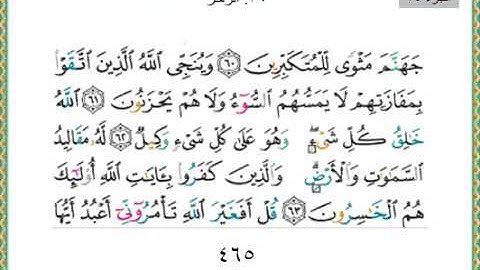 ٣٩. الزمر
جَهَنَّمَ مَثْوًى لِّلْمُتَكَبِّرِينَ ۝٦٠ وَيُنَجِّى اللَّهُ الَّذِينَ اتَّقَوْا
بِمَفَازَتِهِمْ لَا يَمَسُّهُمُ السُّوٓءُ وَلَا هُمْ يَحْزَنُونَ ۝٦١ اللَّهُ
خَٰلِقُ كُلِّ شَىْءٍ ۖ وَهُوَ عَلَىٰ كُلِّ شَىْءٍ وَكِيلٌ ۝٦٢ لَّهُۥ مَقَالِيدُ
السَّمَٰوَٰتِ وَالْأَرْضِ ۗ وَالَّذِينَ كَفَرُوا بِـَٔايَٰتِ اللَّهِ أُولَٰٓئِكَ
هُمُ الْخَٰسِرُونَ ۝٦٣ قُلْ أَفَغَيْرَ اللَّهِ تَأْمُرُوٓنِّىٓ أَعْبُدُ أَيُّهَا
٤٦٥